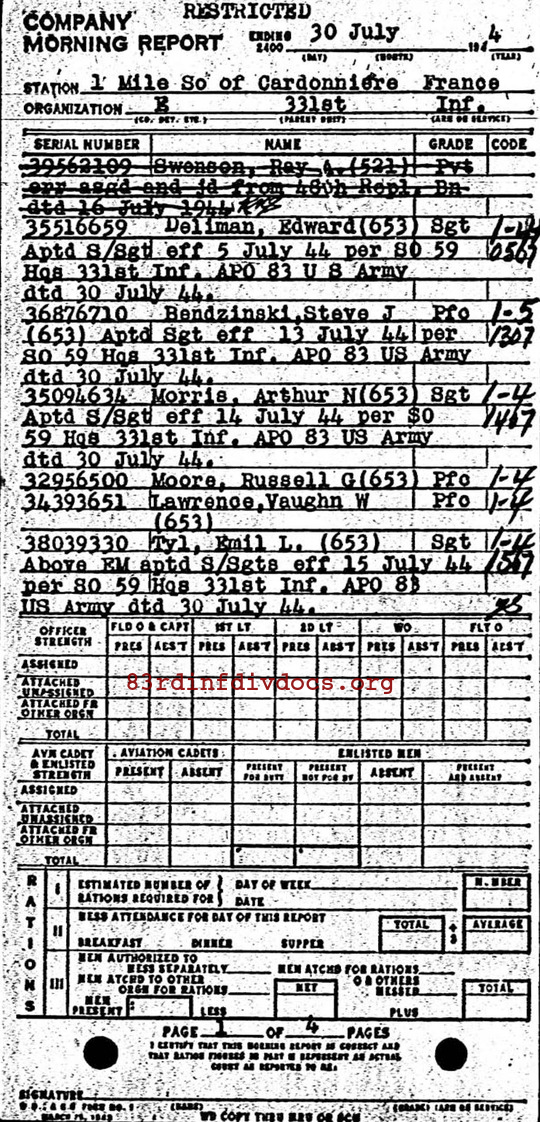 RESTRICTED
COMPANY
MORNING REPORT ENDING 2400 30 July 194 4
(DAY) (MONTH) (YEAR)
STATION 1 Mile So of Cardonniere France
ORGANIZATION E 331st Inf.
(CO. DET. ETC.) (PARENT UNIT) (ARM OR SERVICE)
SERIAL NUMBER NAME GRADE CODE
39562109 Swenson, Ray A. (521) Pvt
err asgd and jd from 48th Repl. Bn
dtd 16 July 1944
35516659 Deliman, Edward(653) Sgt
Aptd S/Sgt eff 5 July 44 per SO 59 0567
Hqs 331st Inf. APO 83 U S Army
dtd 30 July 44.
36876710 Bendzinski,Steve J Pfc 1-5
(653) Aptd Sgt eff 13 July 44 per 1307
SO 59 Hqs 331st Inf. APO 83 US Army
dtd 30 July 44.
35094634 Morris, Arthur N(653) Sgt 1-4
Aptd S/Sgt eff 14 July 44 per SO 1467
59 Hqs 331st Inf. APO 83 US Army
dtd 30 July 44.
32956500 Moore, Russell G(653) Pfc 1-4
34393651 Lawrence,Vaughn W Pfc 1-4
(653)
38039330 Tyl, Emil L. (653) Sgt 1-4
Above EM aptd S/Sgts eff 15 July 44 1567
per SO 59 Hqs 331st Inf. APO 83
US Army dtd 30 July 44.
OFFICER STRENGTH FLD O & CAPT 1ST LT 2D LT WO FLT O
PRES ABS'T PRES ABS'T PRES ABS'T PRES ABS'T PRES ABS'T
ASSIGNED
ATTACHED UNASSIGNED
83rdinfdivdocs.org
ATTACHED FR OTHER ORGN
TOTAL
AVN CADET & ENLISTED STRENGTH AVIATION CADETS ENLISTED MEN
PRESENT ABSENT PRESENT FOR DUTY PRESENT NOT FOR DY ABSENT PRESENT AND ABSENT
ASSIGNED
ATTACHED UNASSIGNED
ATTACHED FR OTHER ORGN
TOTAL
RATIONS
I ESTIMATED NUMBER OF RATIONS REQUIRED FOR } DAY OF WEEK DATE NUMBER
II MESS ATTENDANCE FOR DAY OF THIS REPORT
BREAKFAST DINNER SUPPER TOTAL ÷ 3 AVERAGE
III MEN AUTHORIZED TO MESS SEPARATELY MEN ATCHD FOR RATIONS
MEN ATCHD TO OTHER ORGN FOR RATIONS NET O & OTHERS MESSED TOTAL
MEN PRESENT LESS PLUS
PAGE 1 OF 4 PAGES
I CERTIFY THAT THIS MORNING REPORT IS CORRECT AND
THAT RATION FIGURES IN PART III REPRESENT AN ACTUAL
COUNT AS REPORTED TO ME.
SIGNATURE
W.D., A.G.O. FORM NO. 1 (NAME) (GRADE) (ARM OR SERVICE)
MARCH
WD COPY THRU MRU OR